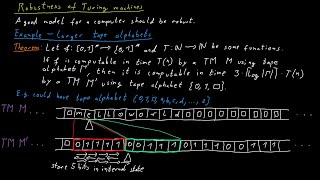 Robustness of Turing machines
A good model for a computer should be robust.
Example – larger tape alphabets
Theorem: Let f: {0,1}* → {0,1}* and T: ℕ → ℕ be some functions.
If f is computable in time T(n) by a TM M using tape
alphabet Γ, then it is computable in time 3·⌈log |Γ|⌉·T(n)
by a TM M' using tape alphabet {0, 1, □}.
E.g. could have tape alphabet {0, 1, □, a, b, c, d, ..., z}
TM M ... □ h e l l o w o r l d □ □ □ □ □ □
TM M' ...
store 5 bits in internal state